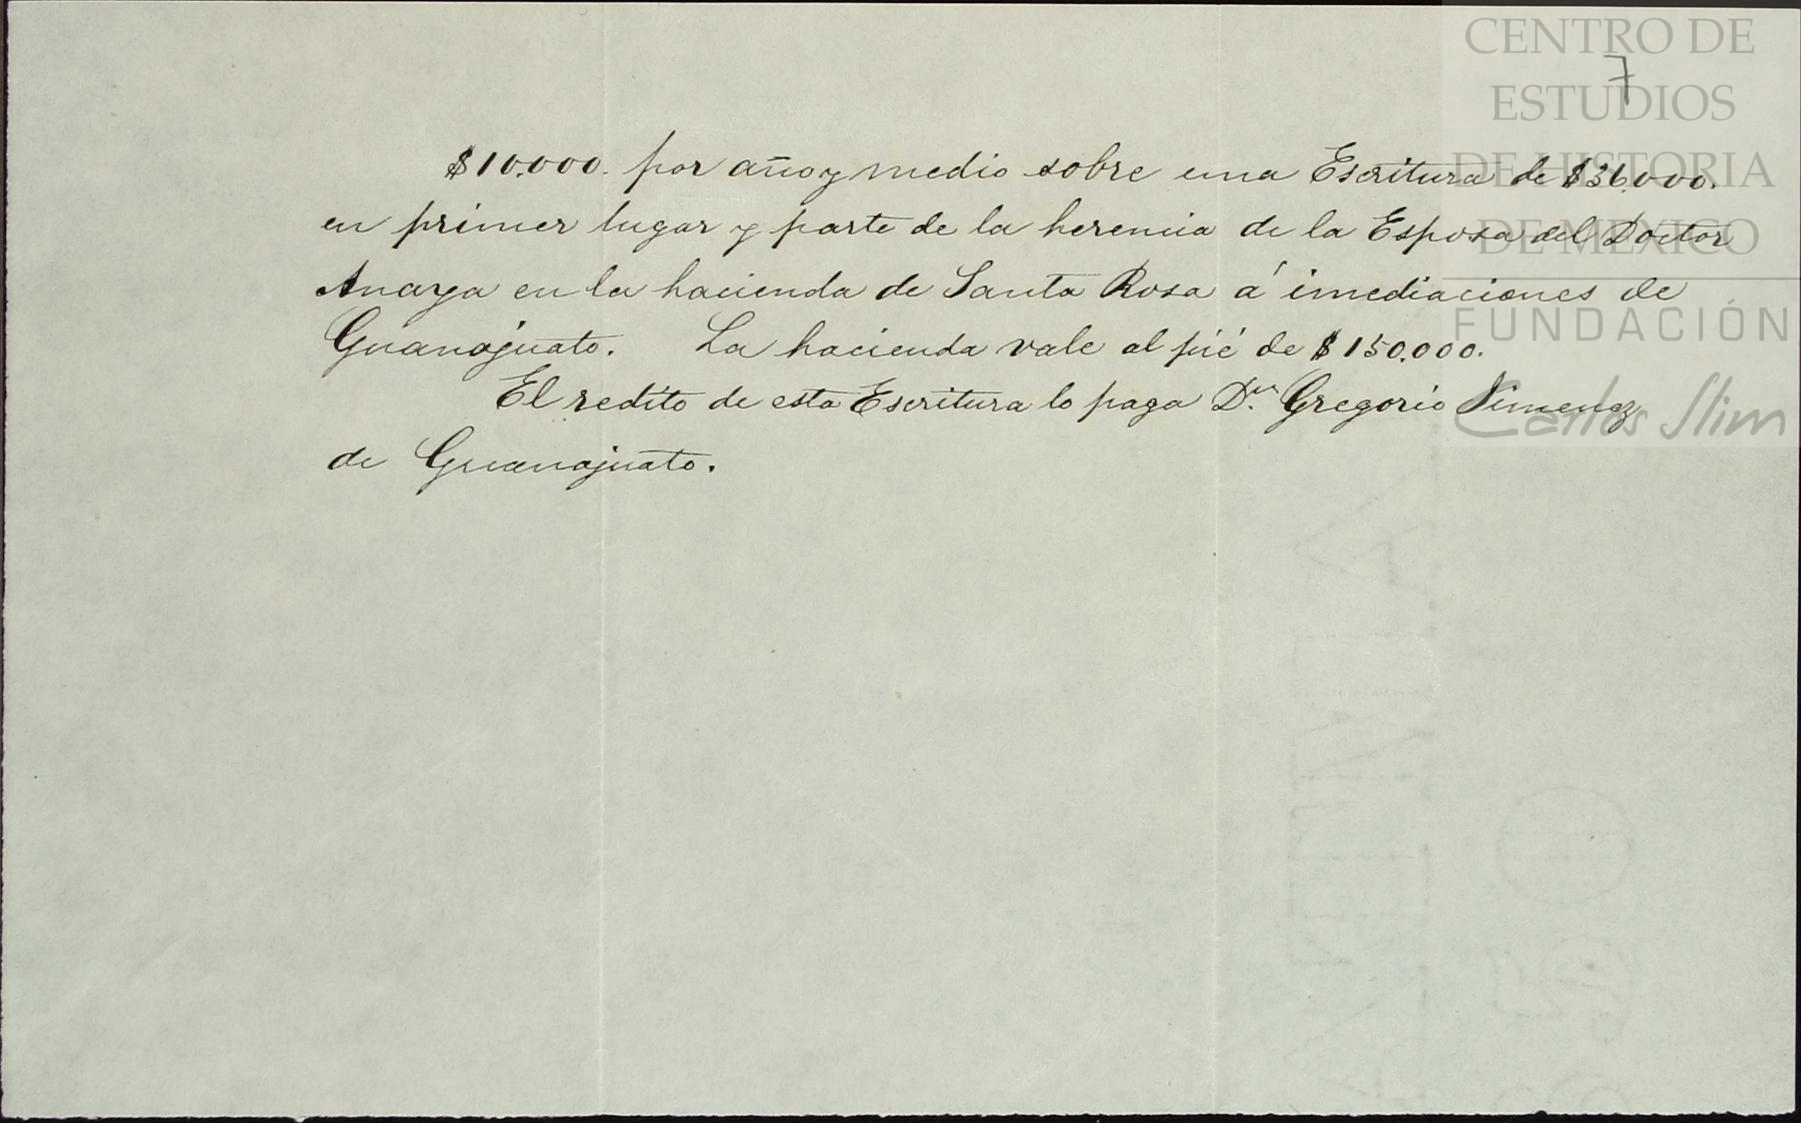 CENTRO DE
ESTUDIOS
DE HISTORIA
DE MEXICO
FUNDACIÓN
Carlos Slim
7
$10.000. por año y medio sobre una Escritura de $36.000.
en primer lugar y parte de la herencia de la Esposa del Doctor
Anaya en la hacienda de Santa Rosa á imediaciones de
Guanajuato. La hacienda vale al pié de $150.000.
El redito de esta Escritura lo paga Dn. Gregorio Jimenez
de Guanajuato.